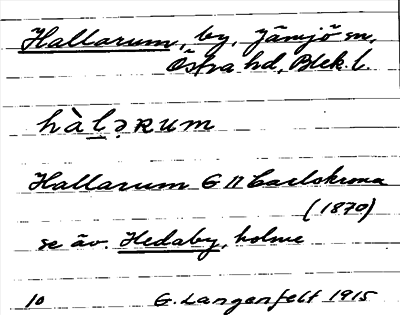 Hallarum, by, Jämjö sn,
Östra hd, Blek. l.
hàl̠ə̣rum
Hallarum G II Carlskrona
(1870)
se äv. Hedaby, holme
10 G. Langenfelt 1915